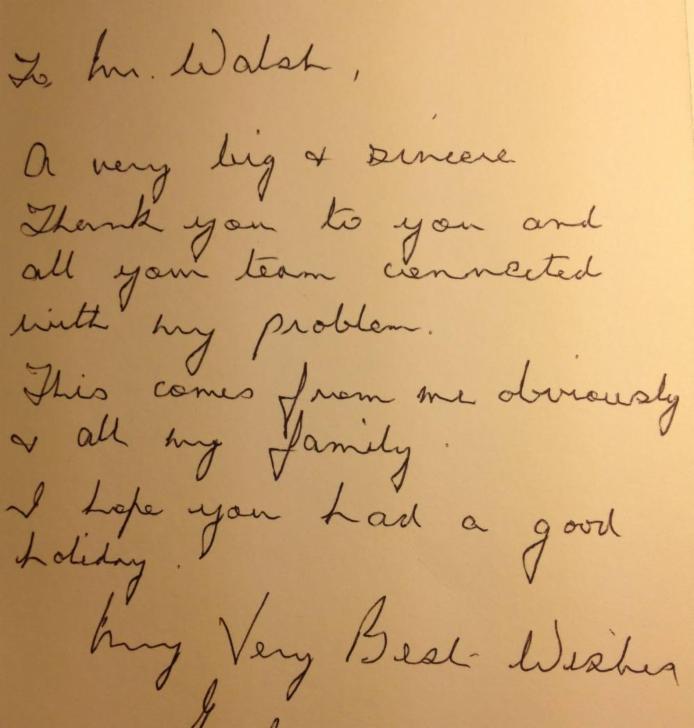 To Mr. Walsh,
A very big & sincere
Thank you to you and
all your team connected
with my problem.
This comes from me obviously
& all my family.
I hope you had a good
holiday.
My Very Best Wishes